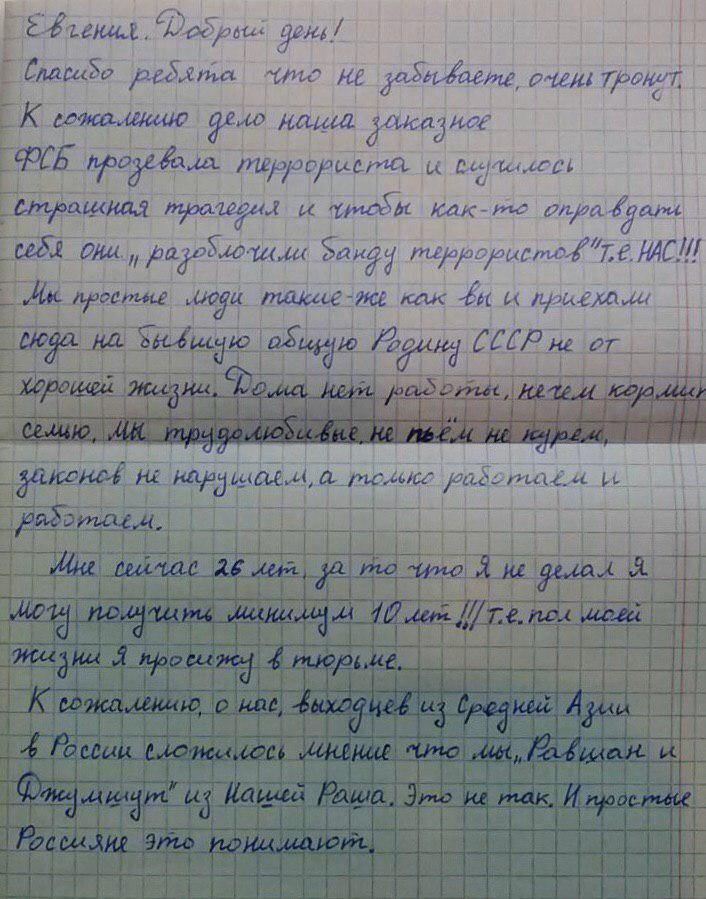 Евгения. Добрый день!
Спасибо ребята что не забываете, очень тронут.
К сожалению дело наша заказное
ФСБ прозевала террориста и случилось
страшная трагедия и чтобы как-то оправдать
себя они „разоблочили банду террористов" т.е. НАС!!!
Мы простые люди такие-же как вы и приехали
сюда на бывшую общую Родину СССР не от
хорошей жизни. Дома нет работы, нечем кормит
семью, мы трудолюбивые, не пьём не курем,
законов не нарушаем, а только работаем и
работаем.
Мне сейчас 26 лет, за то что я не делал я
могу получить минимум 10 лет!!! т.е. пол моей
жизни я просижу в тюрьме.
К сожалению, о нас, выходцев из Средней Азии
в России сложилось мнение что мы „Равшан и
Джумшут" из Нашей Раша. Это не так. И простые
Россияне это понимают.